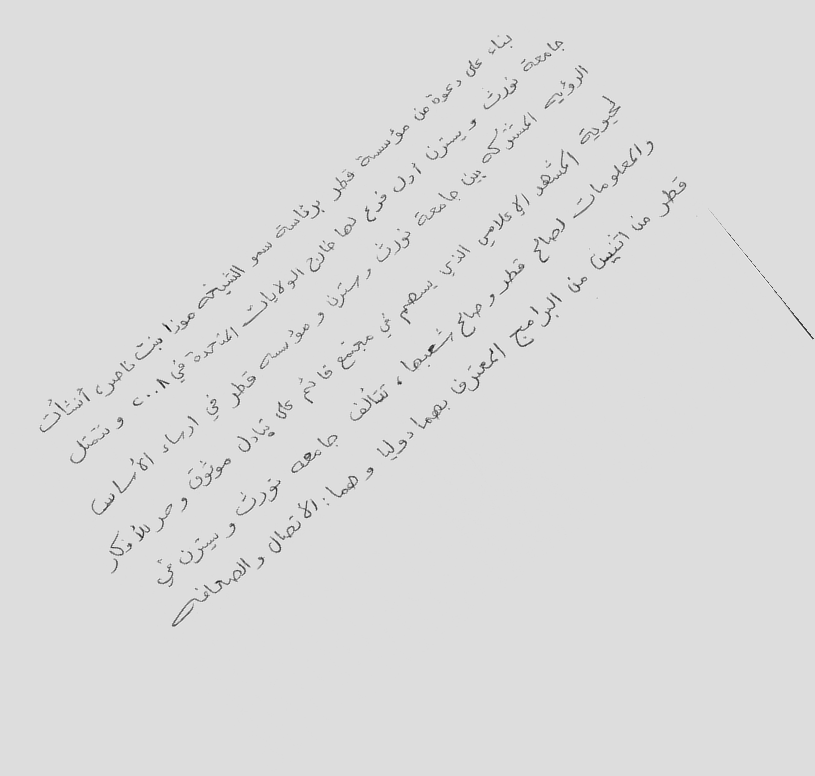 بناء على دعوة من مؤسسة قطر برئاسة سمو الشيخه موزا بنت ناصر، أنشأت
جامعة نورث ويسترن أول فرع لها خارج الولايات المتحدة في ٢٠٠٨ وتتمثل
الرؤيه المشتركه بين جامعة نورث وسترن ومؤسسه قطر في ارساء الأساس
لحيوية المشهد الإعلامي الذي يسهم في مجتمع قائم على تبادل موثوق وحر للأفكار
والمعلومات لصالح قطر وصالح شعبها، تتألف جامعه نورث ويسترن في
قطر من اثنين من البرامج المعترف بهما دوليا وهما: الأتصال والصحافه